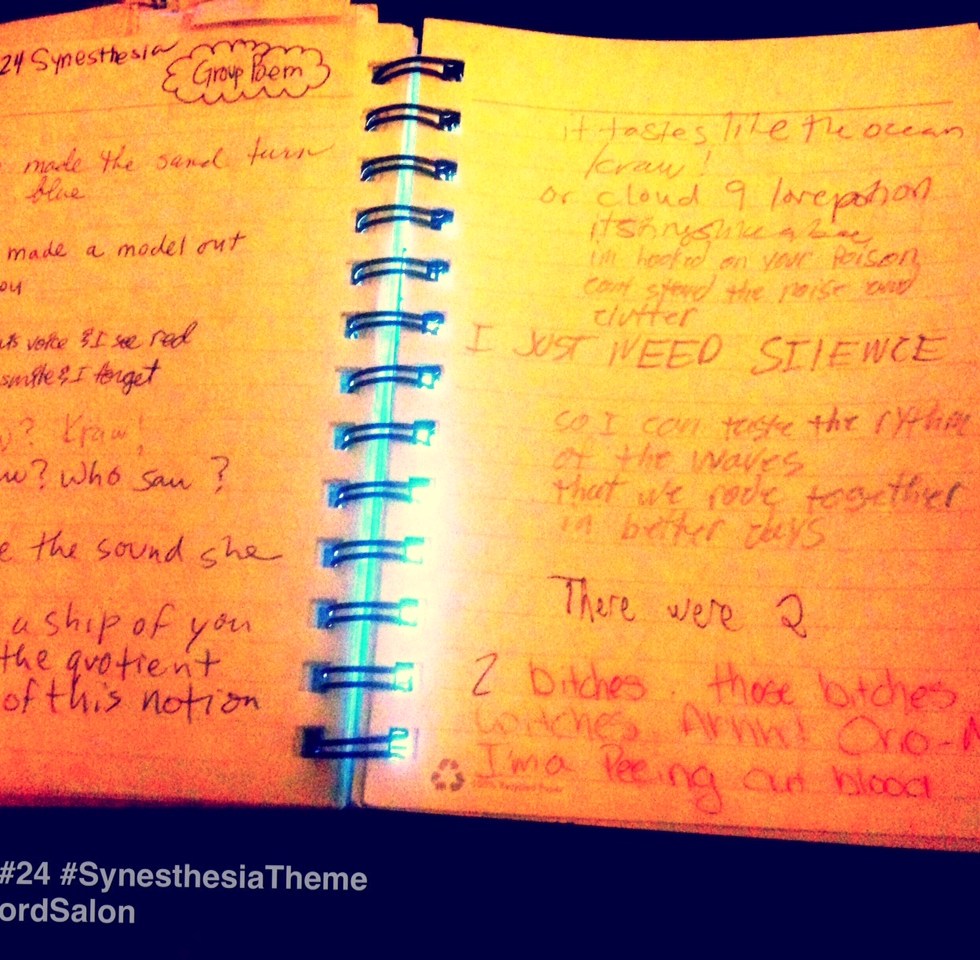 24 Synesthesia
Group Poem
made the sand turn
blue
made a model out
ou
voice & I see red
smile & I forget
? Kraw!
w? Who saw?
e the sound she
a ship of you
the quotient
of this notion
it tastes like the ocean
kraw!
or cloud 9 lovepotion
like a bee
im hooked on your poison
cant stand the noise and
clutter
I JUST NEED SILENCE
so I can taste the rythm
of the waves
that we rode together
in better days
There were 2
2 bitches. those bitches
witches. Arhhh!
I'm a Peeing out blood
100% Recycled Paper
#24 #SynesthesiaTheme
ordSalon